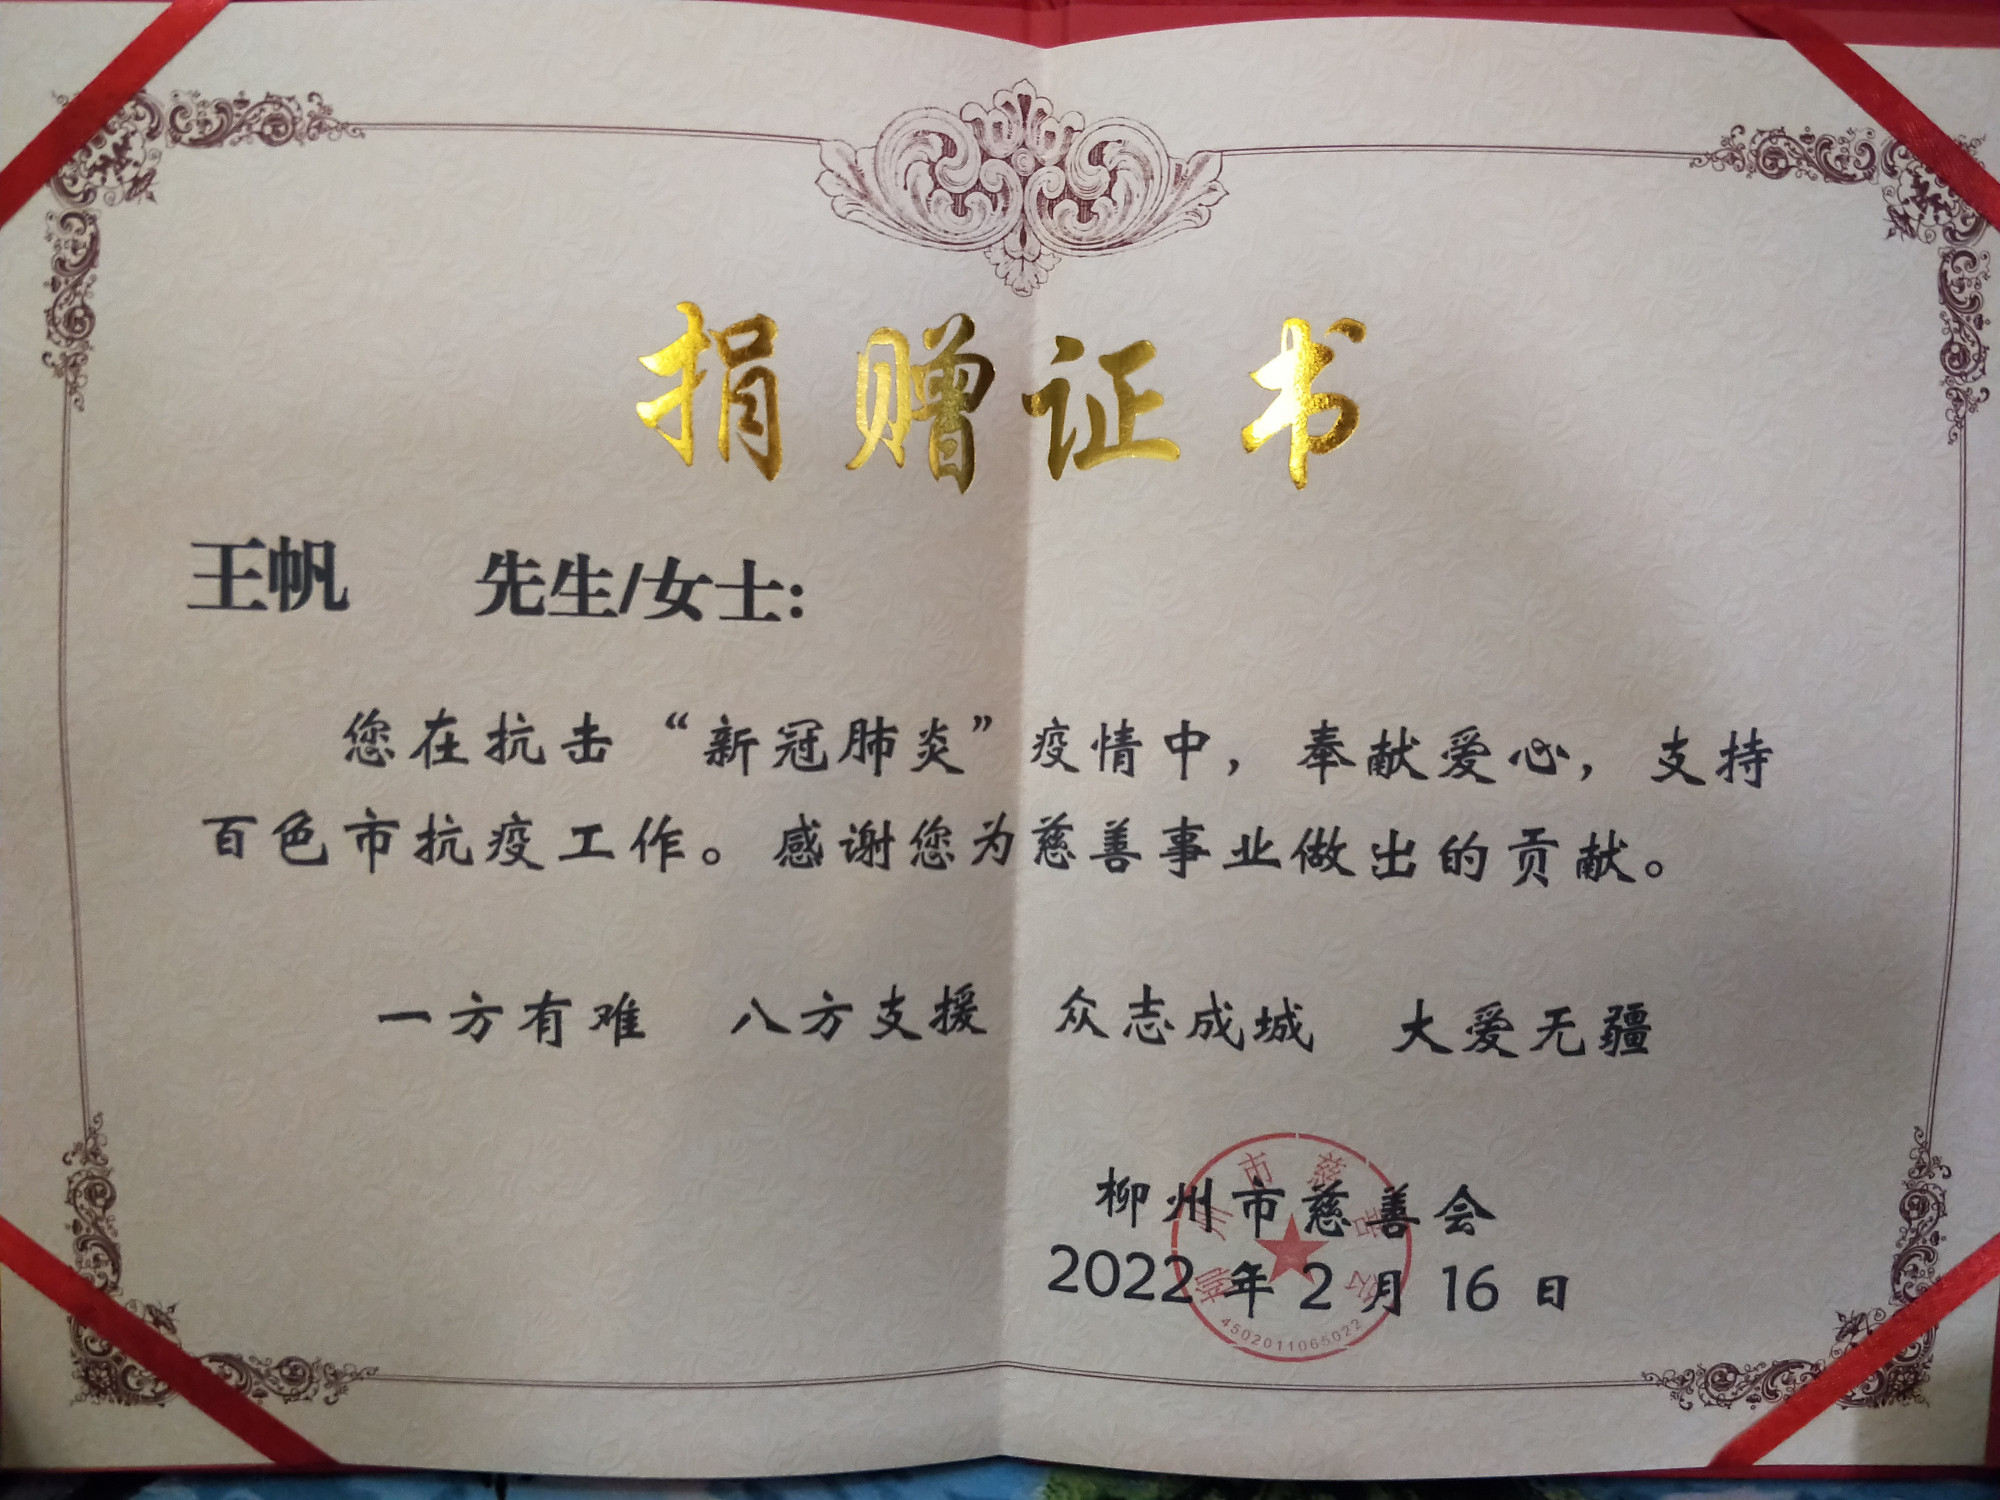 捐赠证书
王帆 先生/女士:
您在抗击“新冠肺炎”疫情中，奉献爱心，支持
百色市抗疫工作。感谢您为慈善事业做出的贡献。
一方有难 八方支援 众志成城 大爱无疆
柳州市慈善会
2022 年 2 月 16 日
4502011065022